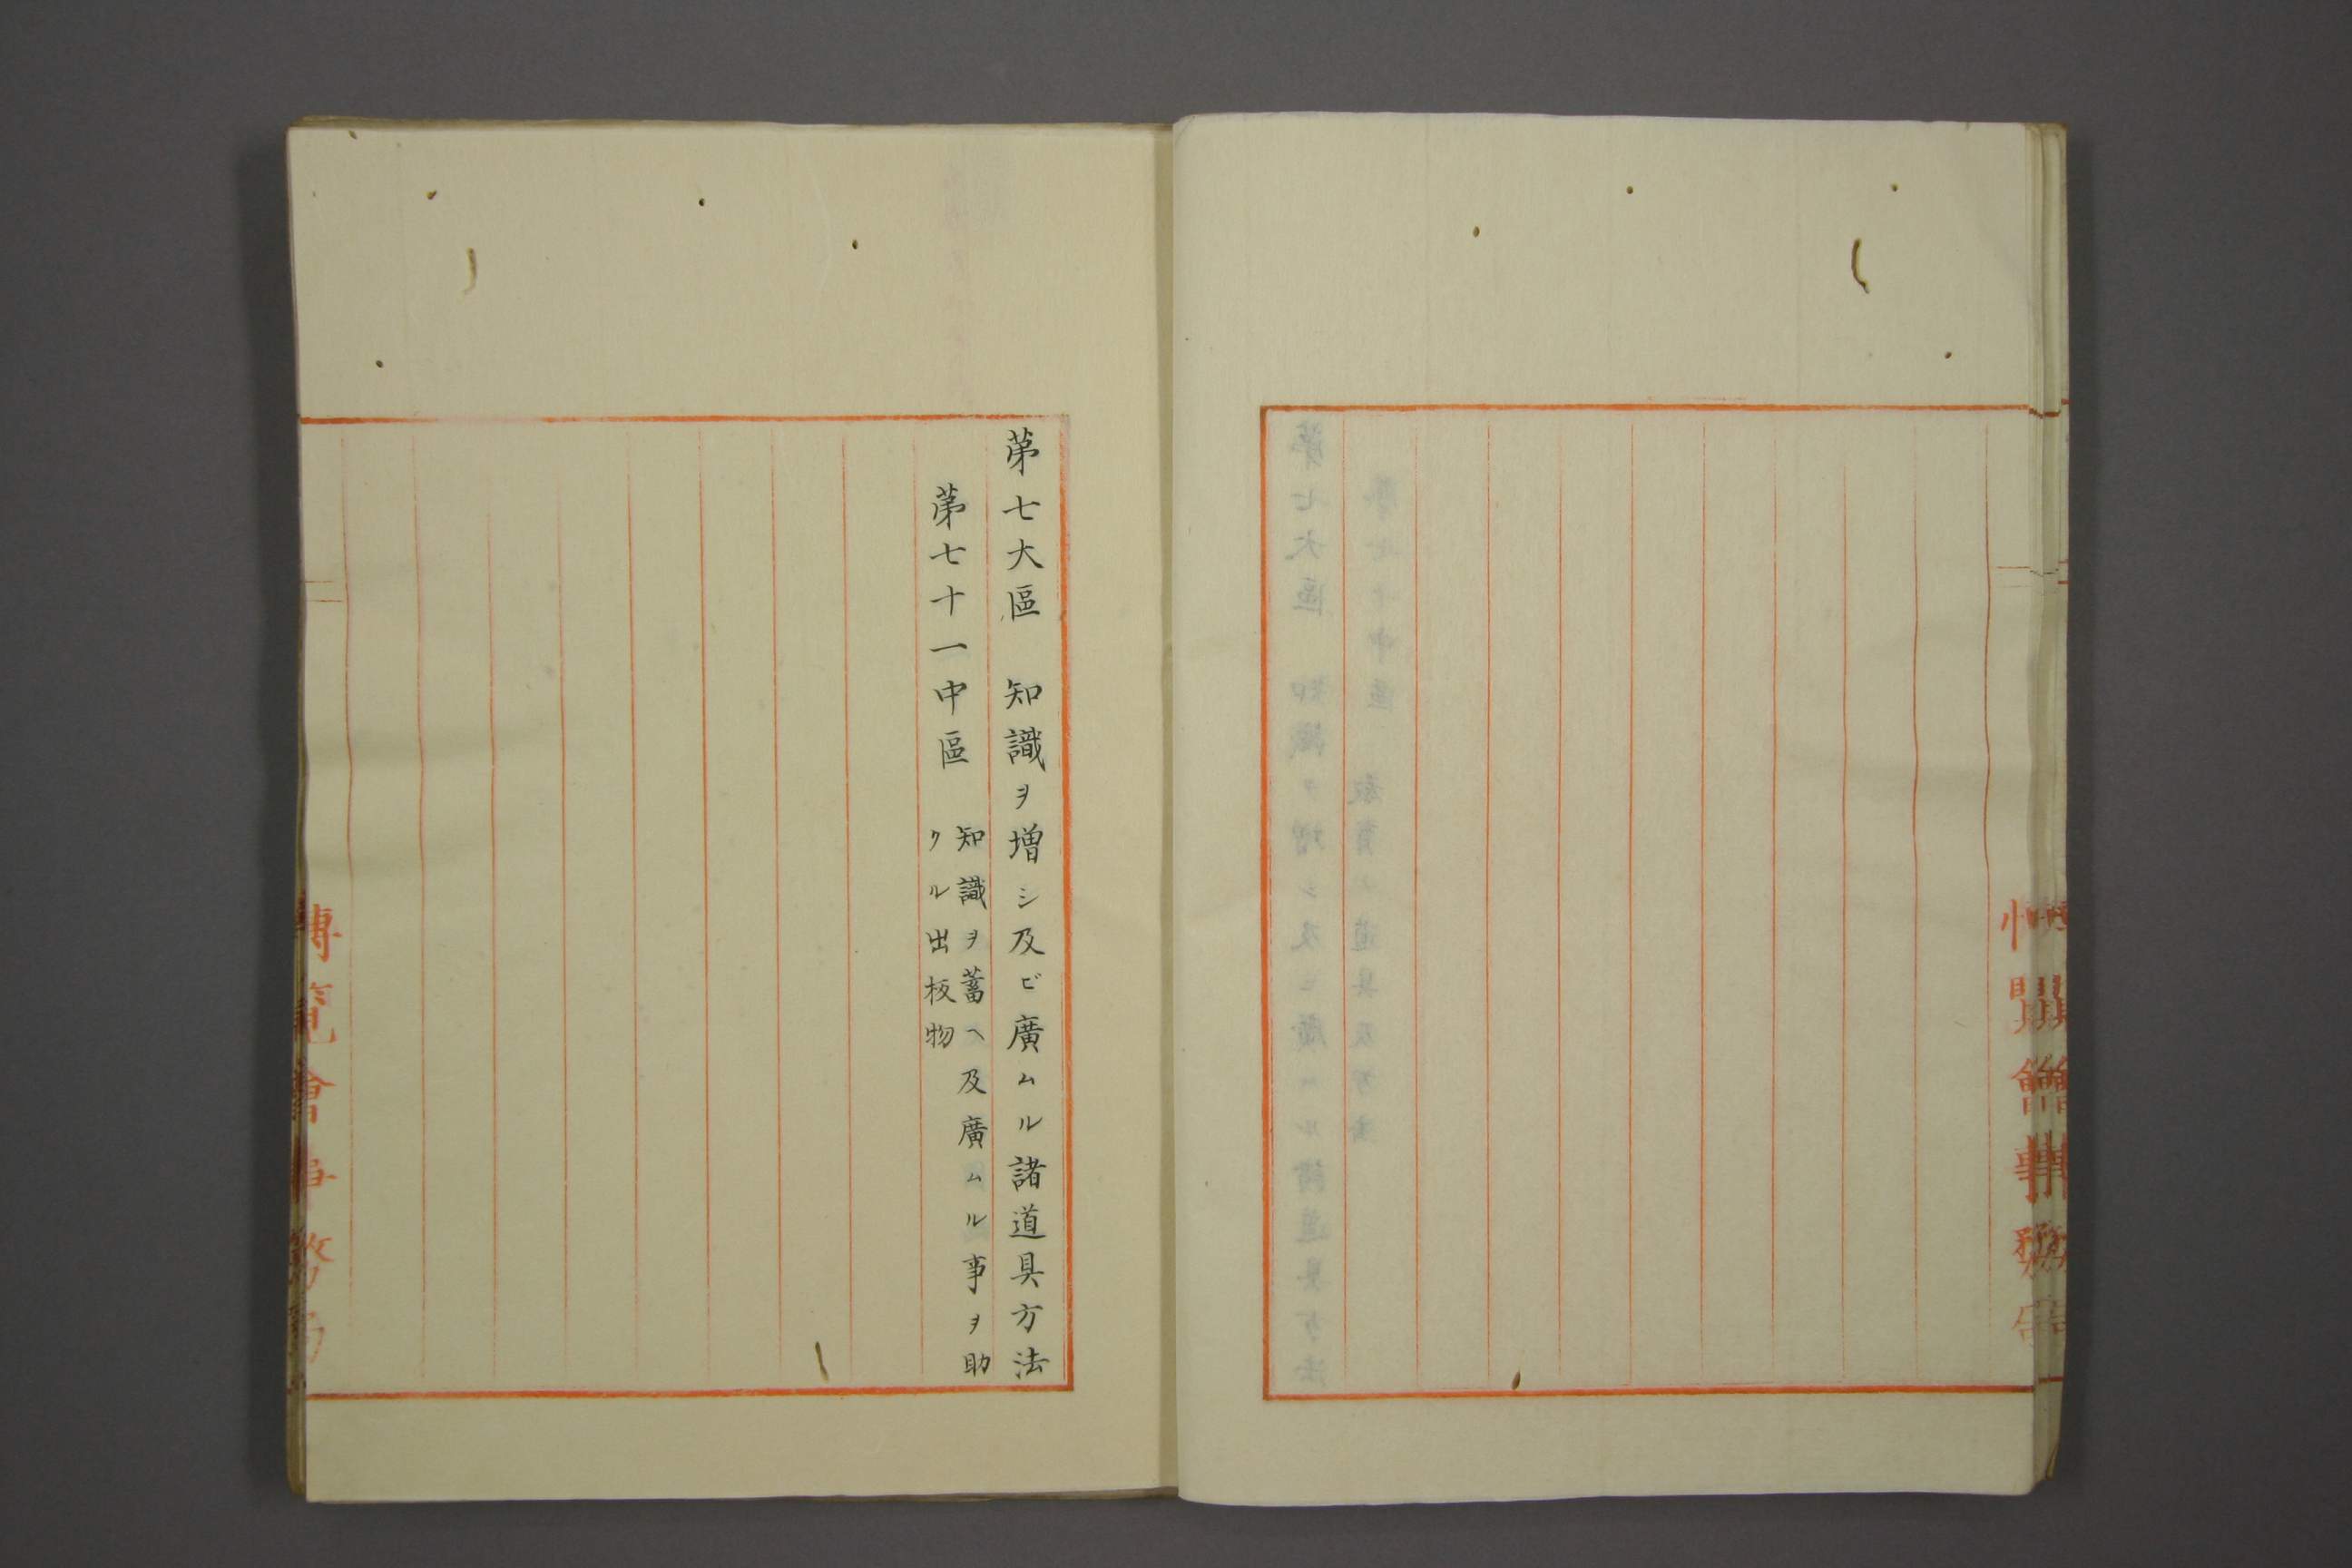 第七大區　知識ヲ増シ及ビ廣ムル諸道具方法
第七十一中區　知識ヲ蓄ヘ及廣ムル事ヲ助
クル出板物
博覽會事務局